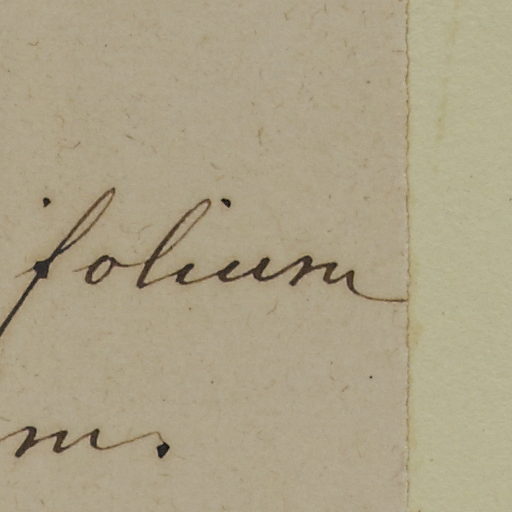 folium
m.